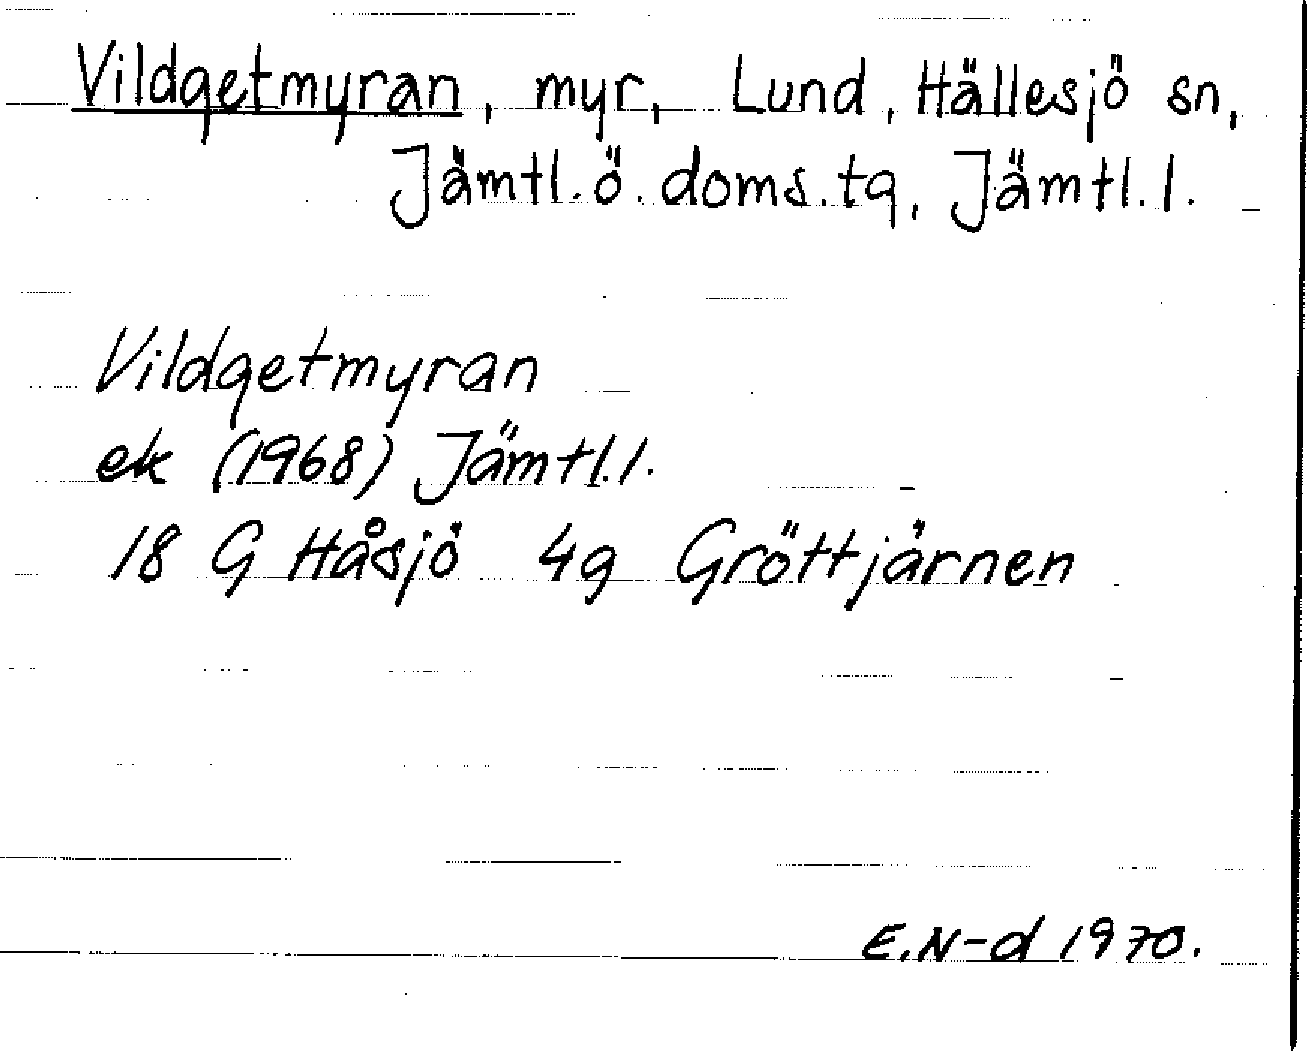 Vildgetmyran, myr, Lund, Hällesjö sn,
Jämtl. ö. doms. tg, Jämtl. l.
Vildgetmyran
ek (1968) Jämtl. l.
18 G Håsjö 4g Gröttjärnen
E.N-d 1970.